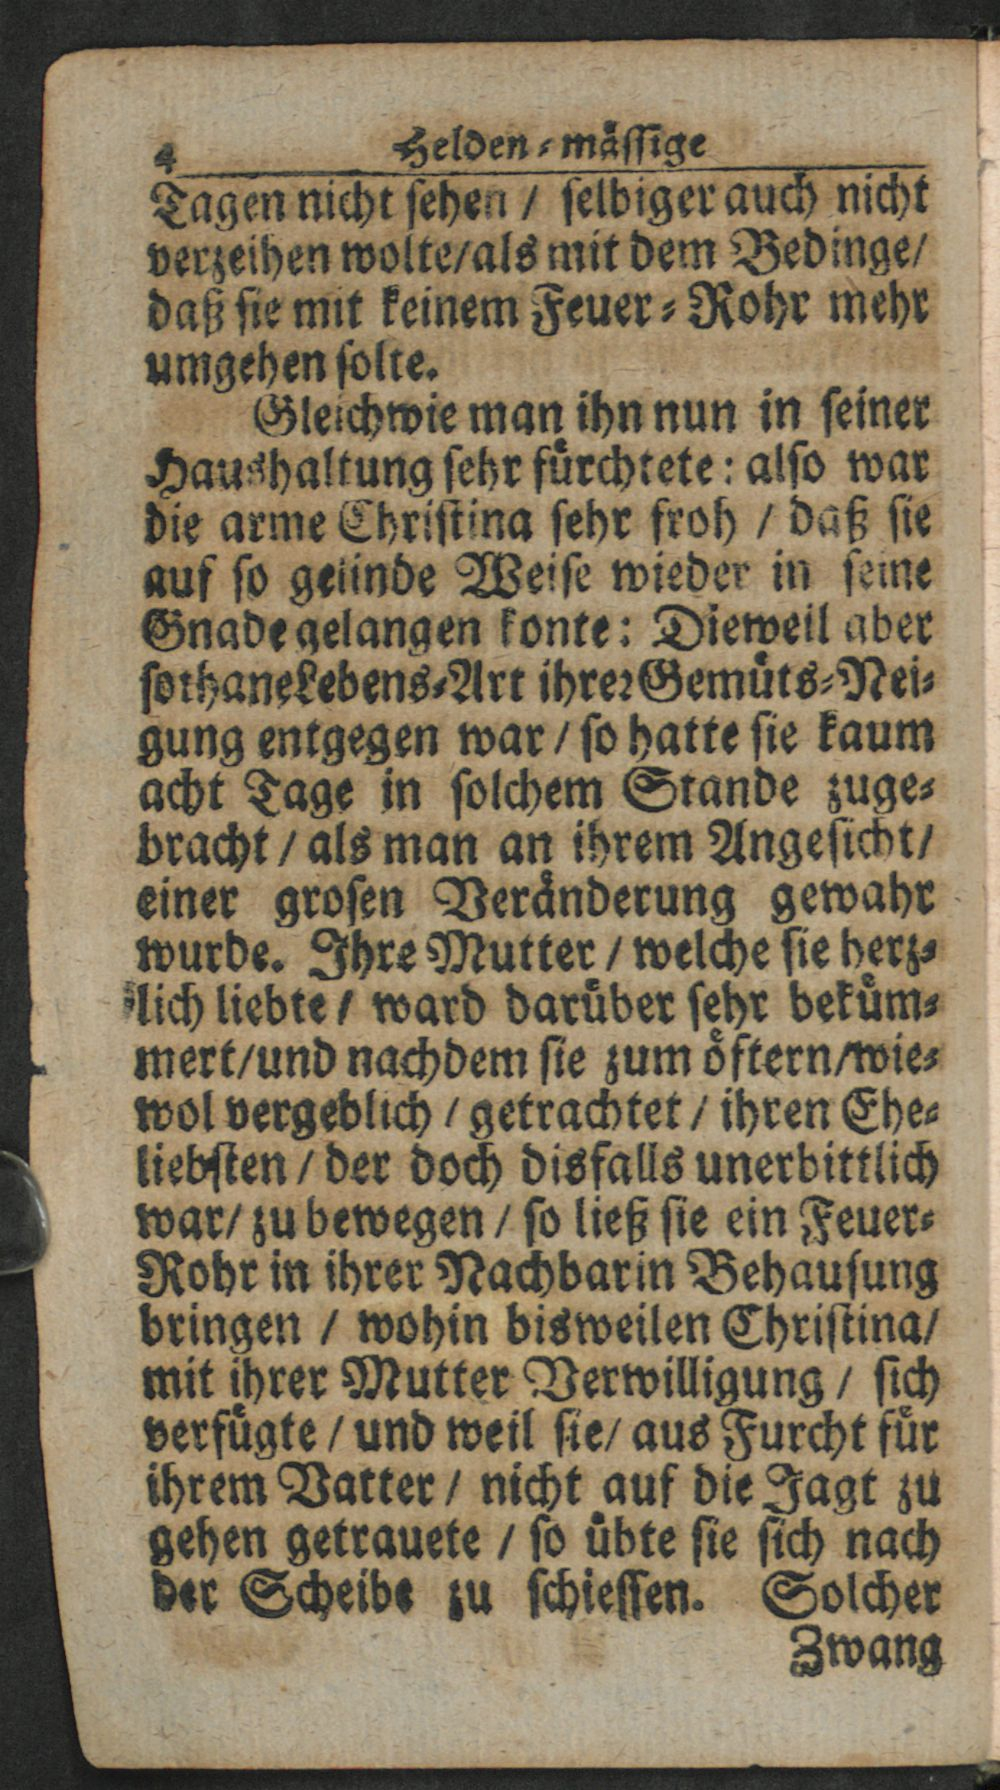 4 Helden-mässige
Tagen nicht sehen / selbiger auch nicht
verzeihen wolte/als mit dem Bedinge/
daß sie mit keinem Feuer-Rohr mehr
umgehen solte.
Gleichwie man ihn nun in seiner
Haushaltung sehr fürchtete: also war
die arme Christina sehr froh / daß sie
auf so gelinde Weise wieder in seine
Gnade gelangen konte: Dieweil aber
sothane Lebens-Art ihrer Gemüts-Nei-
gung entgegen war / so hatte sie kaum
acht Tage in solchem Stande zuge-
bracht / als man an ihrem Angesicht/
einer grosen Veränderung gewahr
wurde. Ihre Mutter / welche sie herz-
lich liebte / ward darüber sehr beküm-
mert/und nachdem sie zum öftern/wie-
wol vergeblich / getrachtet / ihren Ehe-
liebsten / der doch disfalls unerbittlich
war/ zu bewegen / so ließ sie ein Feuer-
Rohr in ihrer Nachbarin Behausung
bringen / wohin bisweilen Christina/
mit ihrer Mutter Verwilligung / sich
verfügte / und weil sie/ aus Furcht für
ihrem Vatter / nicht auf die Jagt zu
gehen getrauete / so übte sie sich nach
der Scheibe zu schiessen. Solcher
Zwang